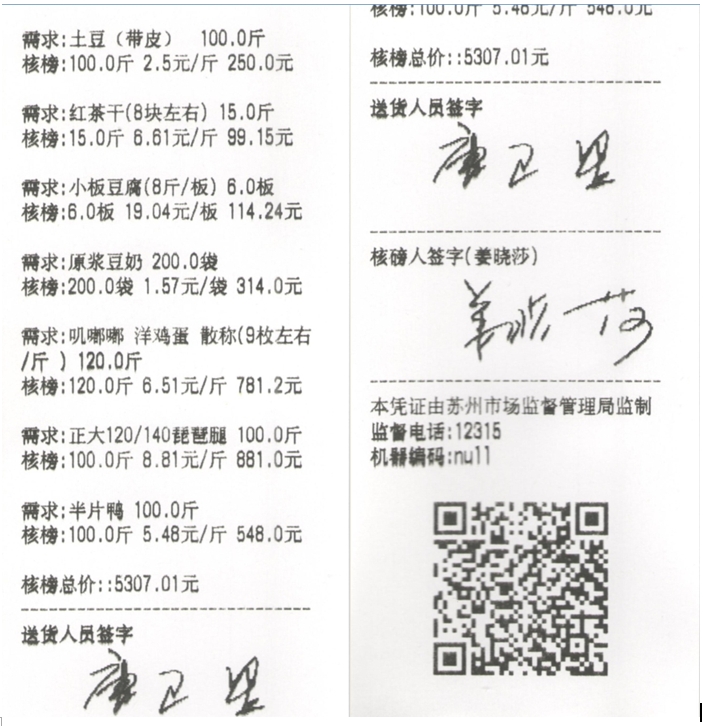 需求:土豆（带皮） 100.0斤
核榜:100.0斤 2.5元/斤 250.0元
需求:红茶干(8块左右) 15.0斤
核榜:15.0斤 6.61元/斤 99.15元
需求:小板豆腐(8斤/板) 6.0板
核榜:6.0板 19.04元/板 114.24元
需求:原浆豆奶 200.0袋
核榜:200.0袋 1.57元/袋 314.0元
需求:叽嘟嘟 洋鸡蛋 散称(9枚左右
/斤 ) 120.0斤
核榜:120.0斤 6.51元/斤 781.2元
需求:正大120/140琵琶腿 100.0斤
核榜:100.0斤 8.81元/斤 881.0元
需求:半片鸭 100.0斤
核榜:100.0斤 5.48元/斤 548.0元
核榜总价::5307.01元
送货人员签字
核榜:100.0斤 5.48元/斤 548.0元
核榜总价::5307.01元
送货人员签字
核磅人签字(姜晓莎)
姜晓莎
本凭证由苏州市场监督管理局监制
监督电话:12315
机器编码:null